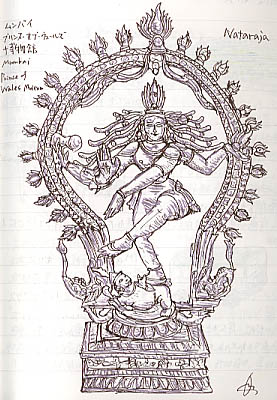 ムンバイ
プリンス・オブ・ウェールズ
博物館
Mumbai
Prince of
Wales Museum
Nataraja